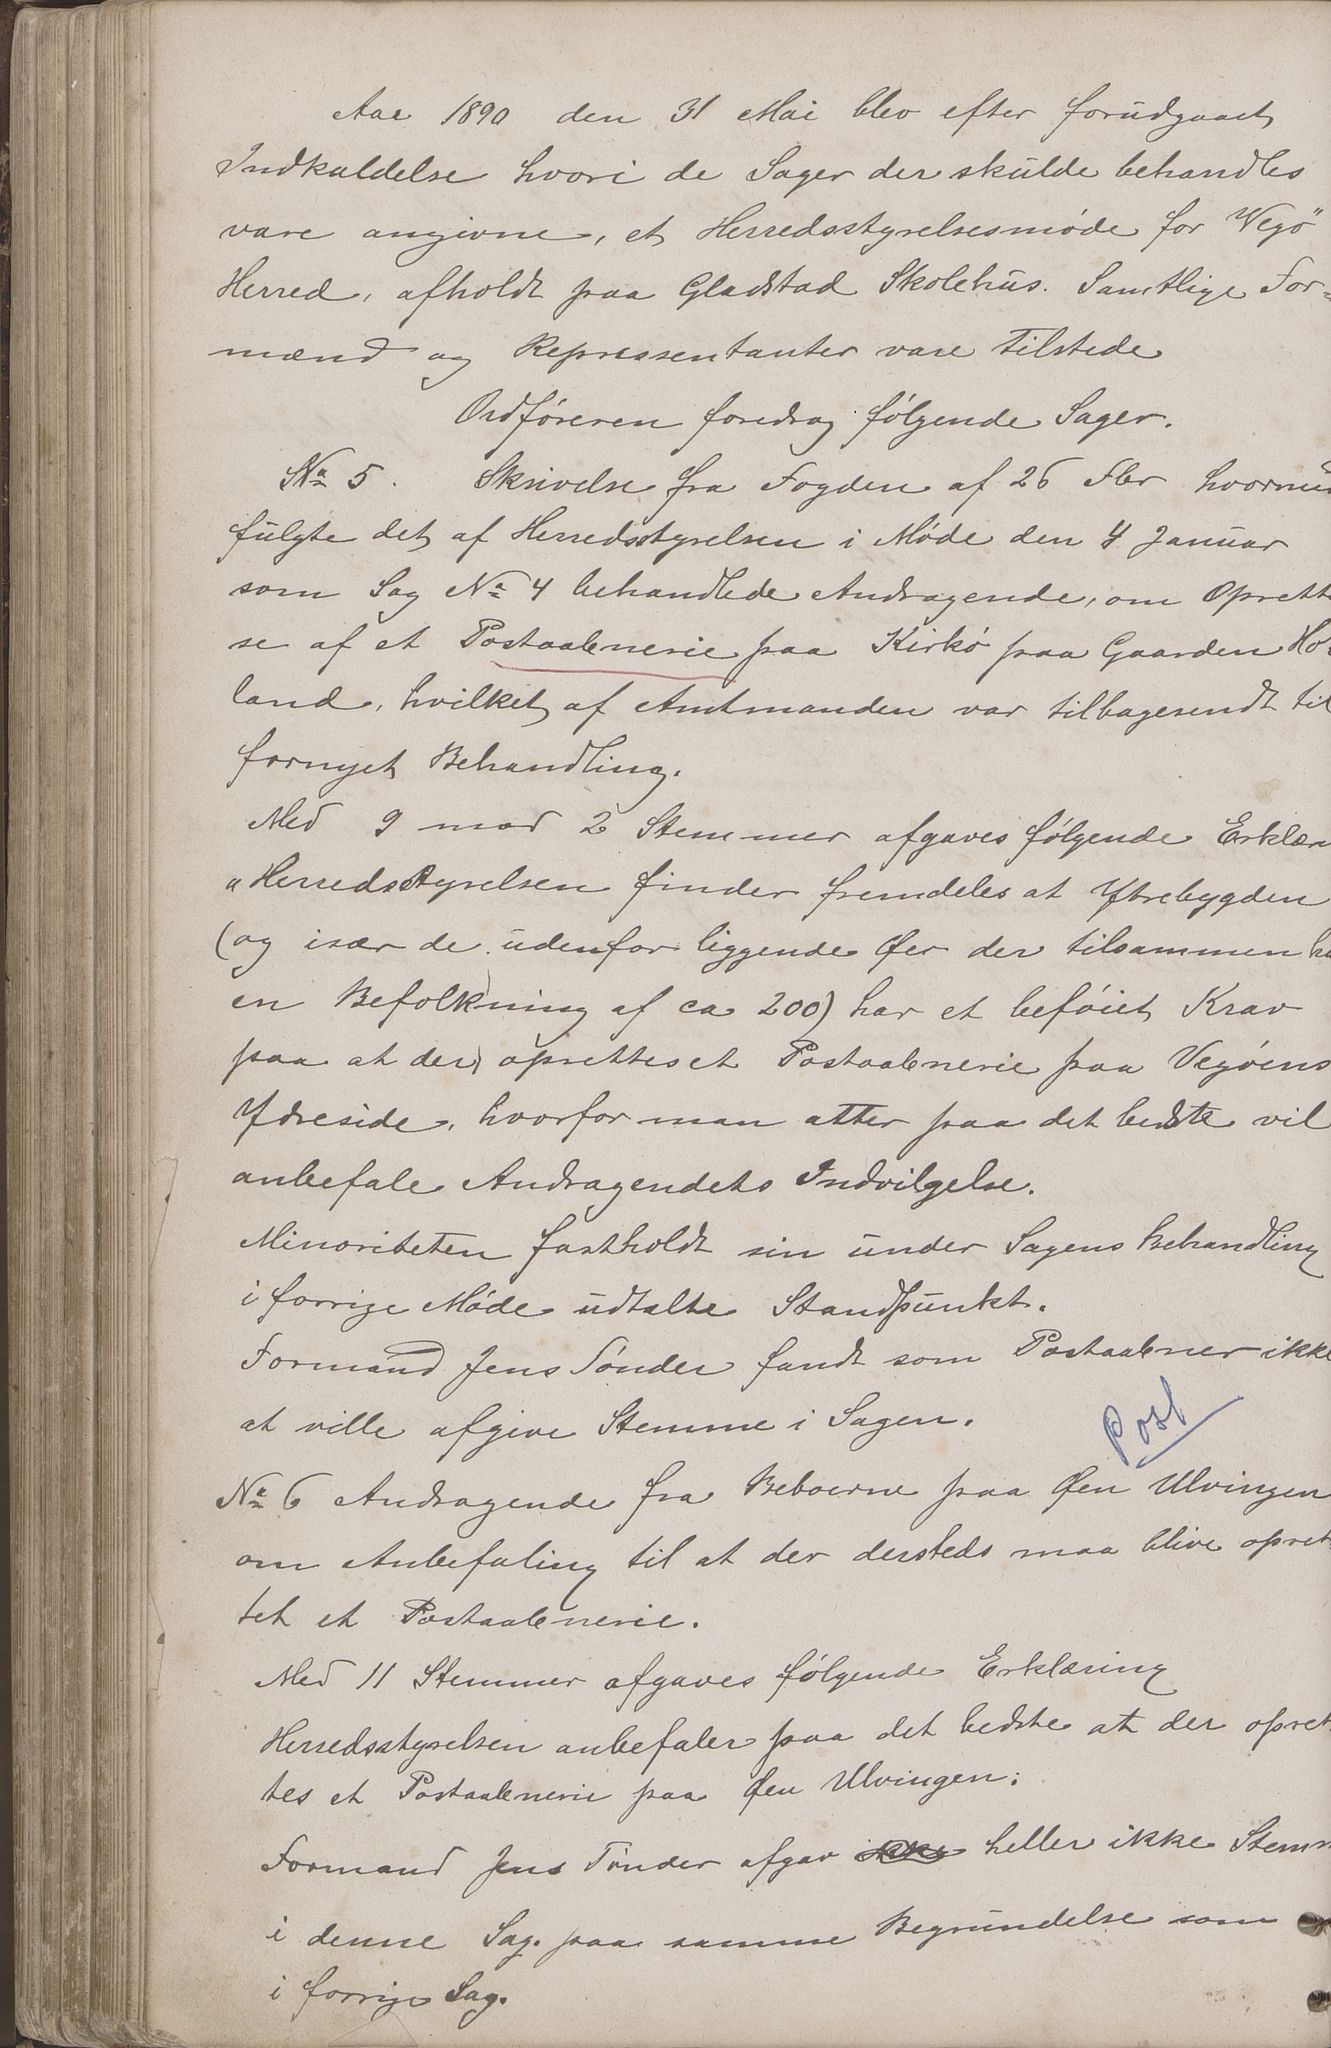 Aar 1890 den 31 Mai blev efter forudgaaet
Indkaldelse hvori de Sager der skulde behandles
vare angivne, et Herredsstyrelsesmøde for Vegø
Herred, afholdt paa Gladstad Skolehus. Samtlige For=
mænd og Repræsentanter vare tilstede
Ordføreren foredrog følgende Sager.
No 5. Skrivelse fra Fogden af 26 Fbr hvormed
fulgte det af Herredsstyrelsen i Møde den 4 Januar
som Sag No 4 behandlede Andragende, om Oprettel
se af et Postaabnerie paa Kirkø paa Gaarden Ho=
land, hvilket af Amtmanden var tilbagesendt til
fornyet Behandling.
Med 9 mod 2 Stemmer afgaves følgende Erklær
"Herredsstyrelsen finder fremdeles at Ytrebygden
(og især de udenfor liggende Øer der tilsammen ha
en Befolkning af ca 200) har et beføiet Krav
paa at der oprettes et Postaabnerie paa Vegøens
Ydreside, hvorfor man atter paa det bedste vil
anbefale Andragendets Indvilgelse.
Minoriteten fastholdt sin under Sagens Behandling
i forrige Møde udtalte Standpunkt.
Formand Jens Tønder fandt som Postaabner ikke
at ville afgive Stemme i Sagen.
Post
No 6 Andragende fra Beboerne paa Øen Ulvingen
om Anbefaling til at der dersteds maa blive opret
tet et Postaabnerie.
Med 11 Stemmer afgaves følgende Erklæring
Herredsstyrelsen anbefaler paa det bedste at der opret
tes et Postaabnerie paa Øen Ulvingen.
Formand Jens Tønder afgav ikke heller ikke Stemm
i denne Sag. paa samme Begrundelse som
i forrige Sag.